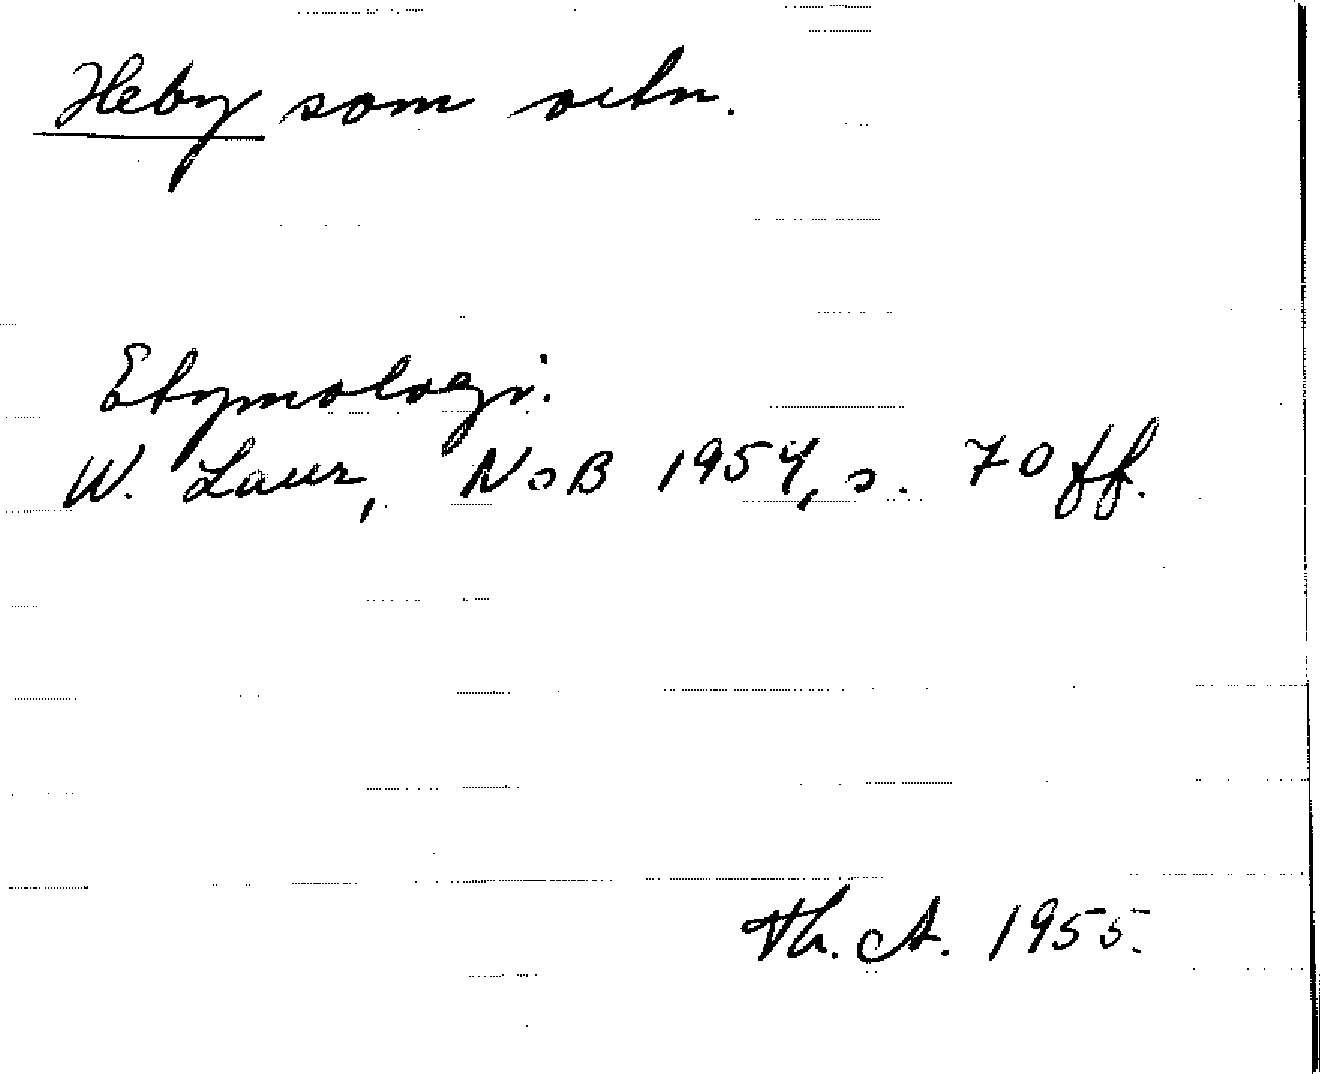 Heby som ortn.
Etymologi:
W. Laur, NoB 1954, s. 70 ff.
Th. A. 1955.